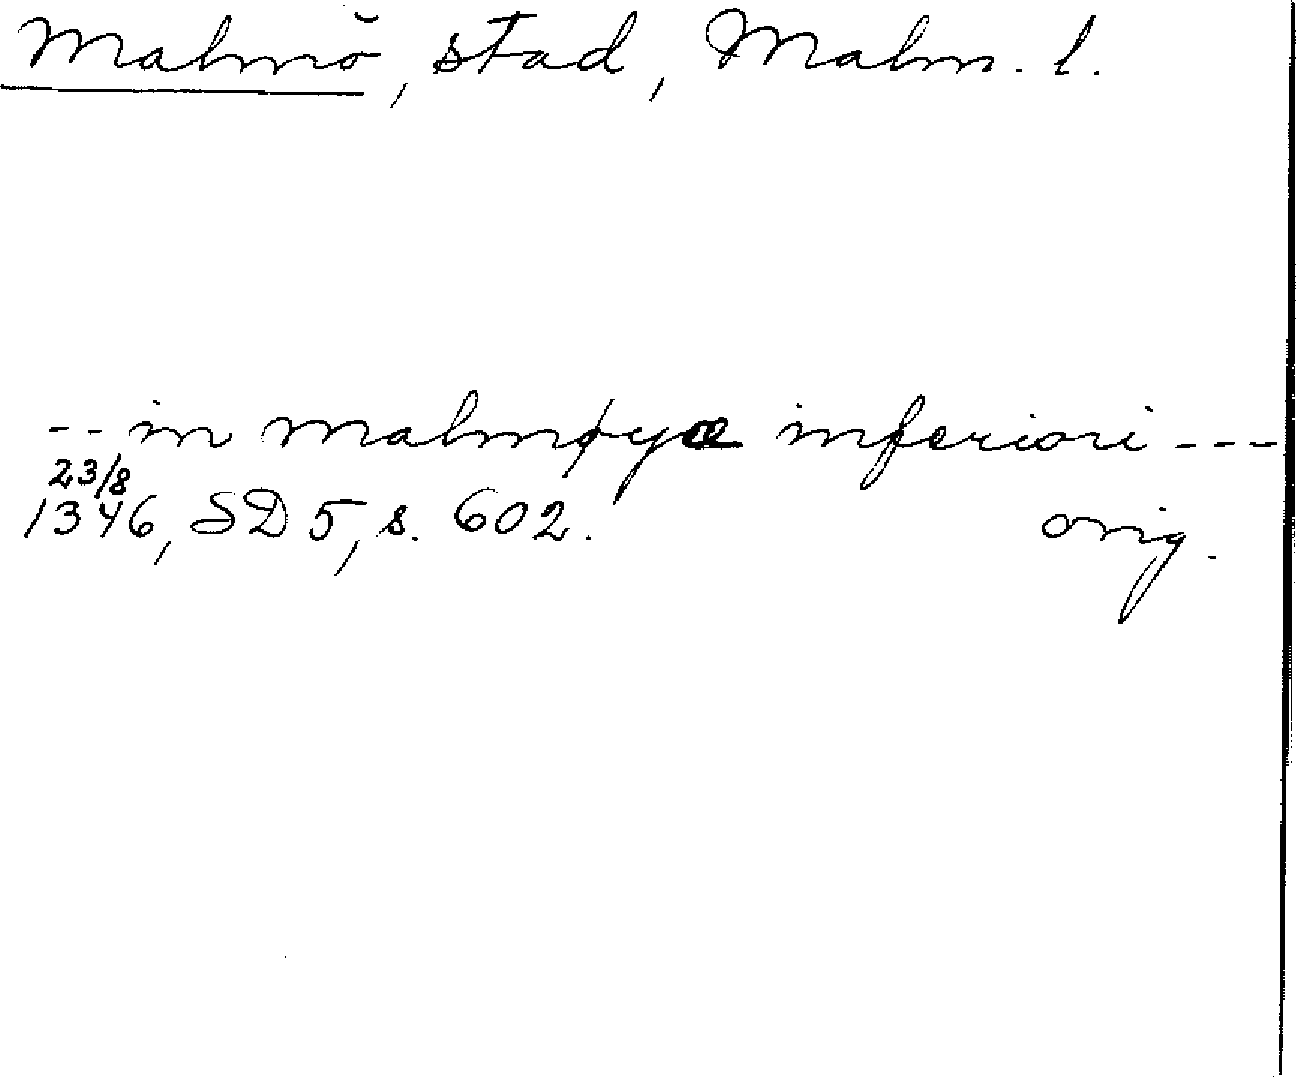 Malmö, stad, Malm. l.
-- in malmøyæ inferiori ---
23/8
1346, SD 5, s. 602. orig.